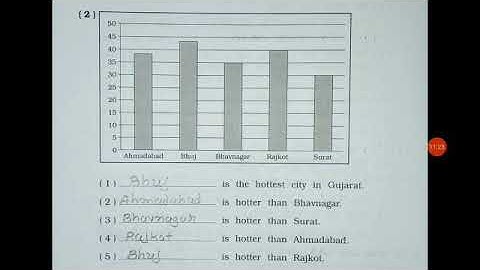 ( 2 )
50
45
40
35
30
25
20
15
10
5
0
Ahmadabad Bhuj Bhavnagar Rajkot Surat
( 1 ) Bhuj is the hottest city in Gujarat.
( 2 ) Ahmadabad is hotter than Bhavnagar.
( 3 ) Bhavnagar is hotter than Surat.
( 4 ) Rajkot is hotter than Ahmadabad.
( 5 ) Bhuj is hotter than Rajkot.